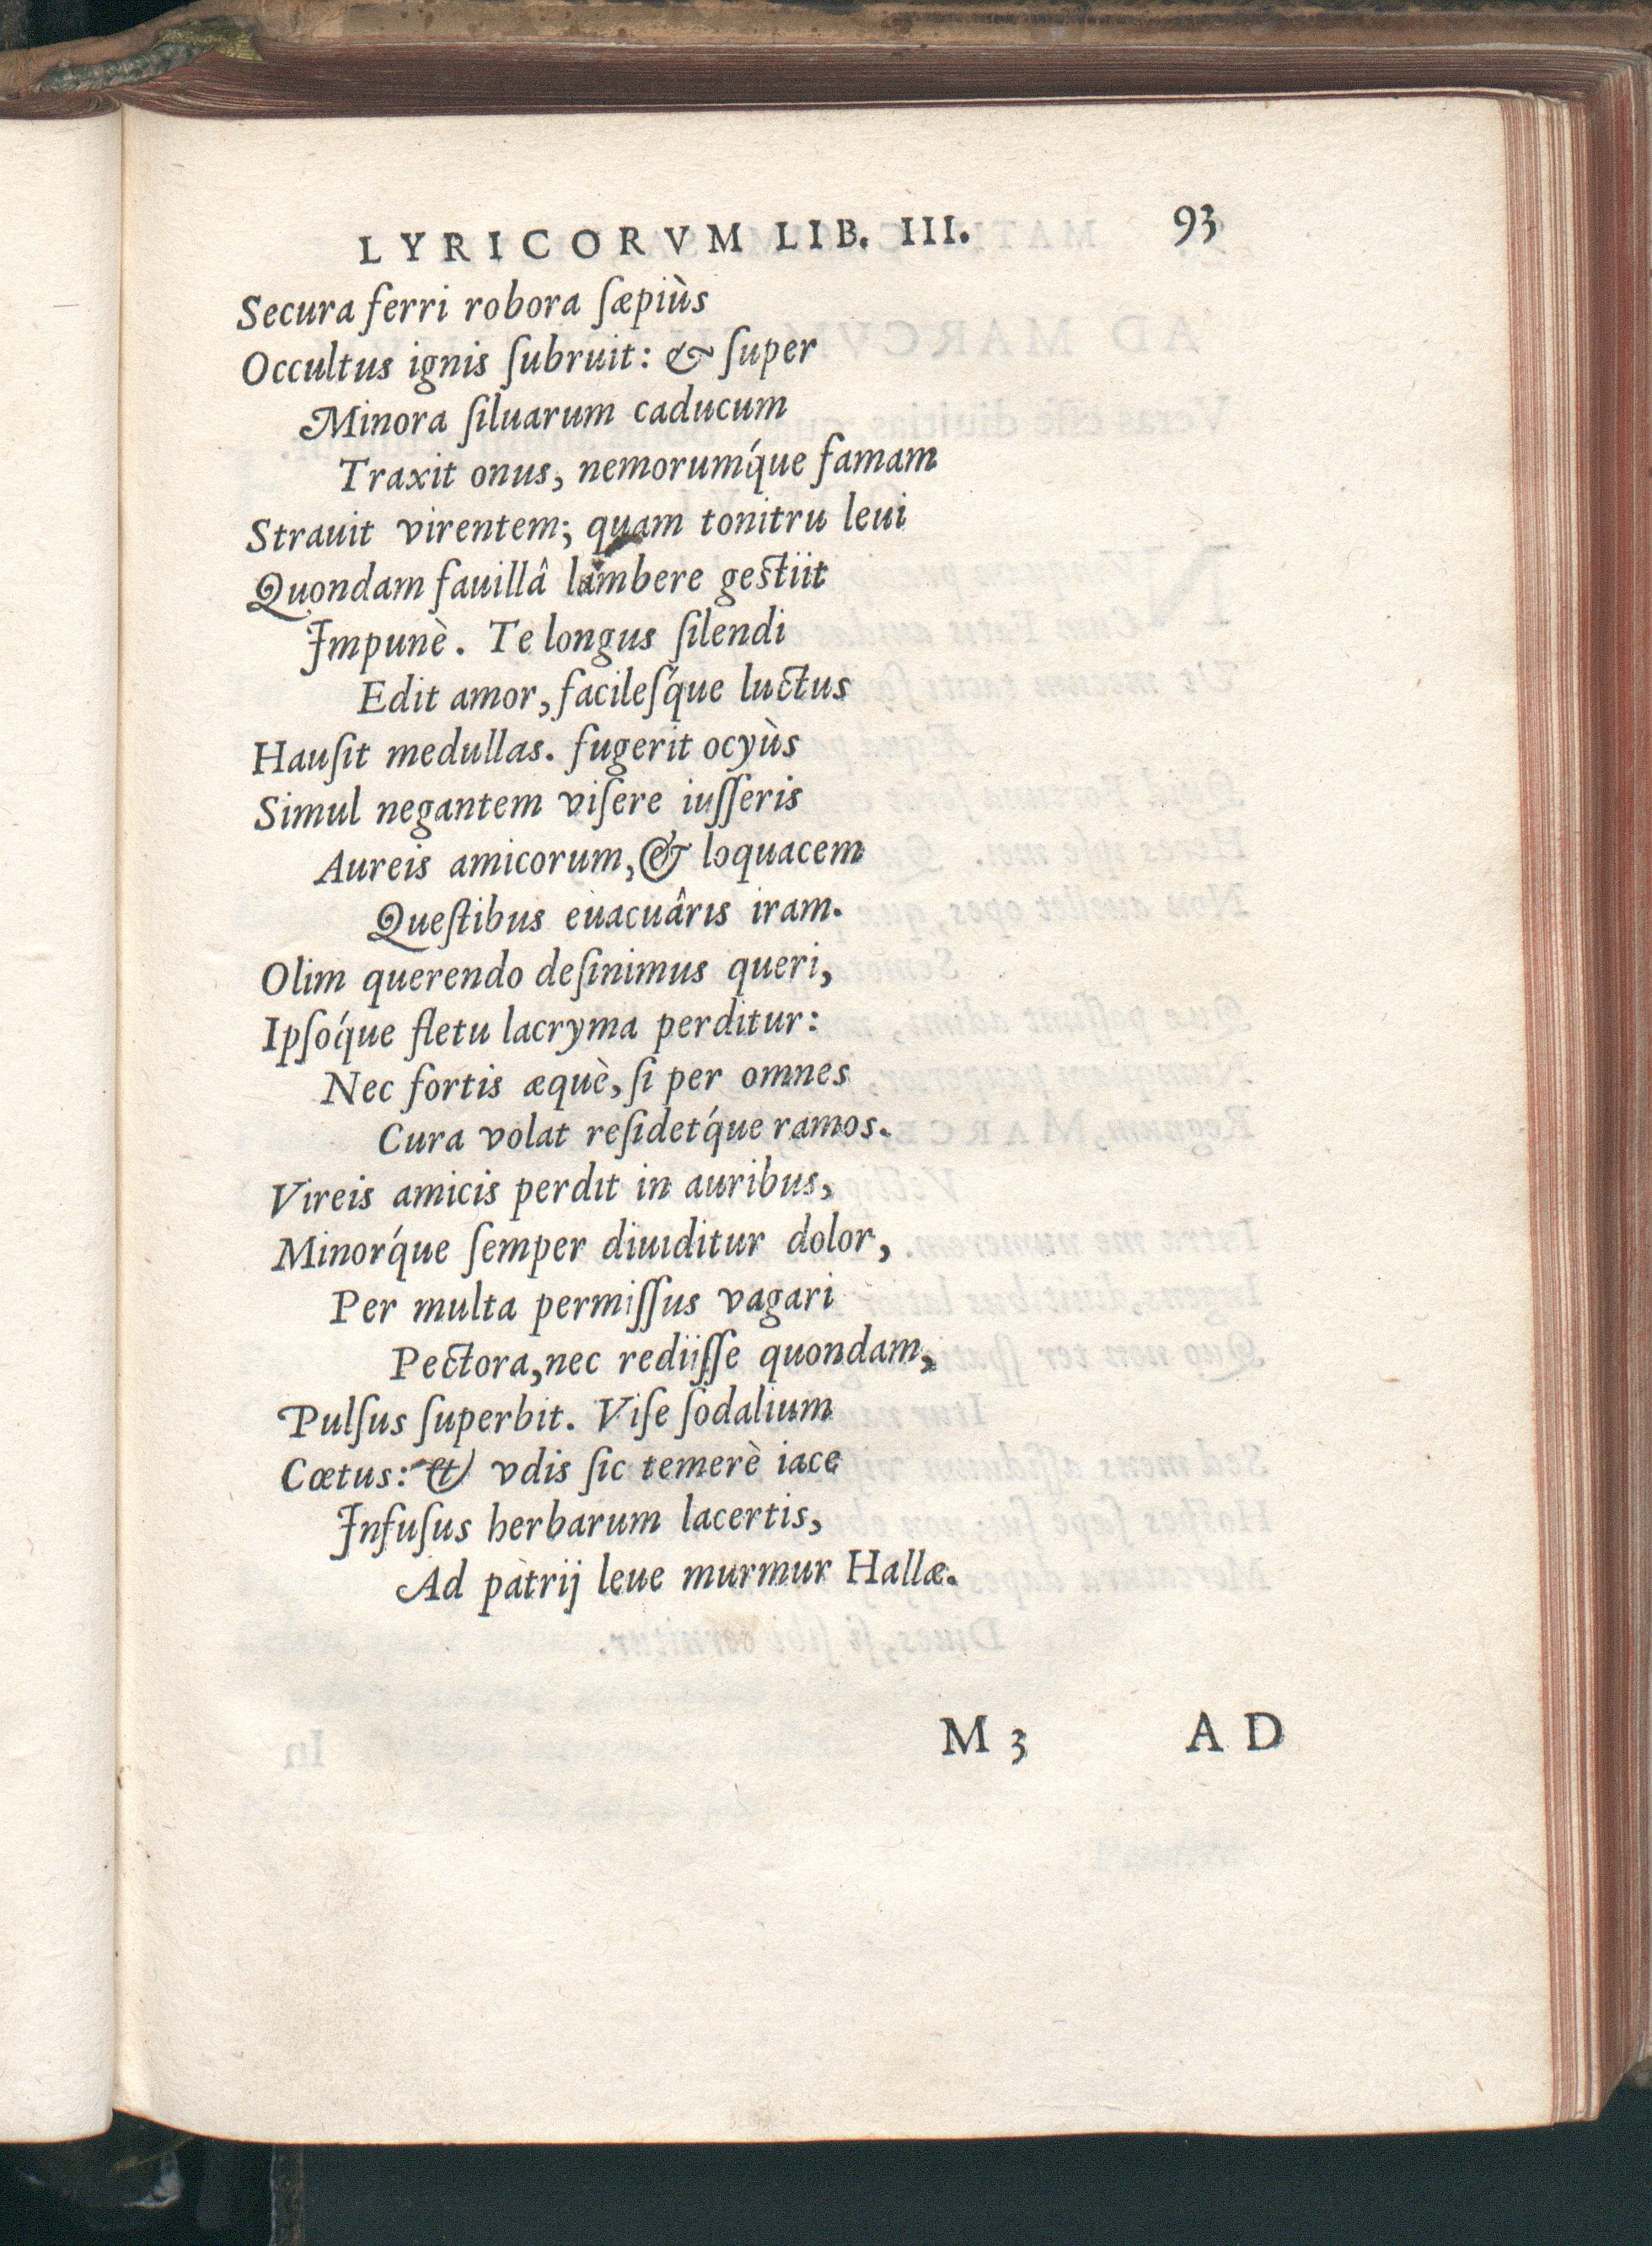 LYRICORVM LIB. III. 93
Secura ferri robora ſæpiùs
Occultus ignis ſubruit: & ſuper
Minora ſiluarum caducum
Traxit onus, nemorumq́ue famam
Strauit virentem; quam tonitru leui
Quondam fauillâ lambere geſtiit
Impunè. Te longus ſilendi
Edit amor, facileſq́ue luctus
Hauſit medullas. fugerit ocyùs
Simul negantem viſere iuſſeris
Aureis amicorum, & loquacem
Queſtibus euacuâris iram.
Olim querendo deſinimus queri,
Ipſoq́ue fletu lacryma perditur:
Nec fortis æquè, ſi per omnes
Cura volat reſidetq́ue ramos.
Vireis amicis perdit in auribus,
Minorq́ue ſemper diuiditur dolor,
Per multa permiſſus vagari
Pectora, nec rediiſſe quondam,
Pulſus ſuperbit. Viſe ſodalium
Cœtus: & vdis ſic temerè iace
Infuſus herbarum lacertis,
Ad patrij leue murmur Hallæ.
M 3 AD